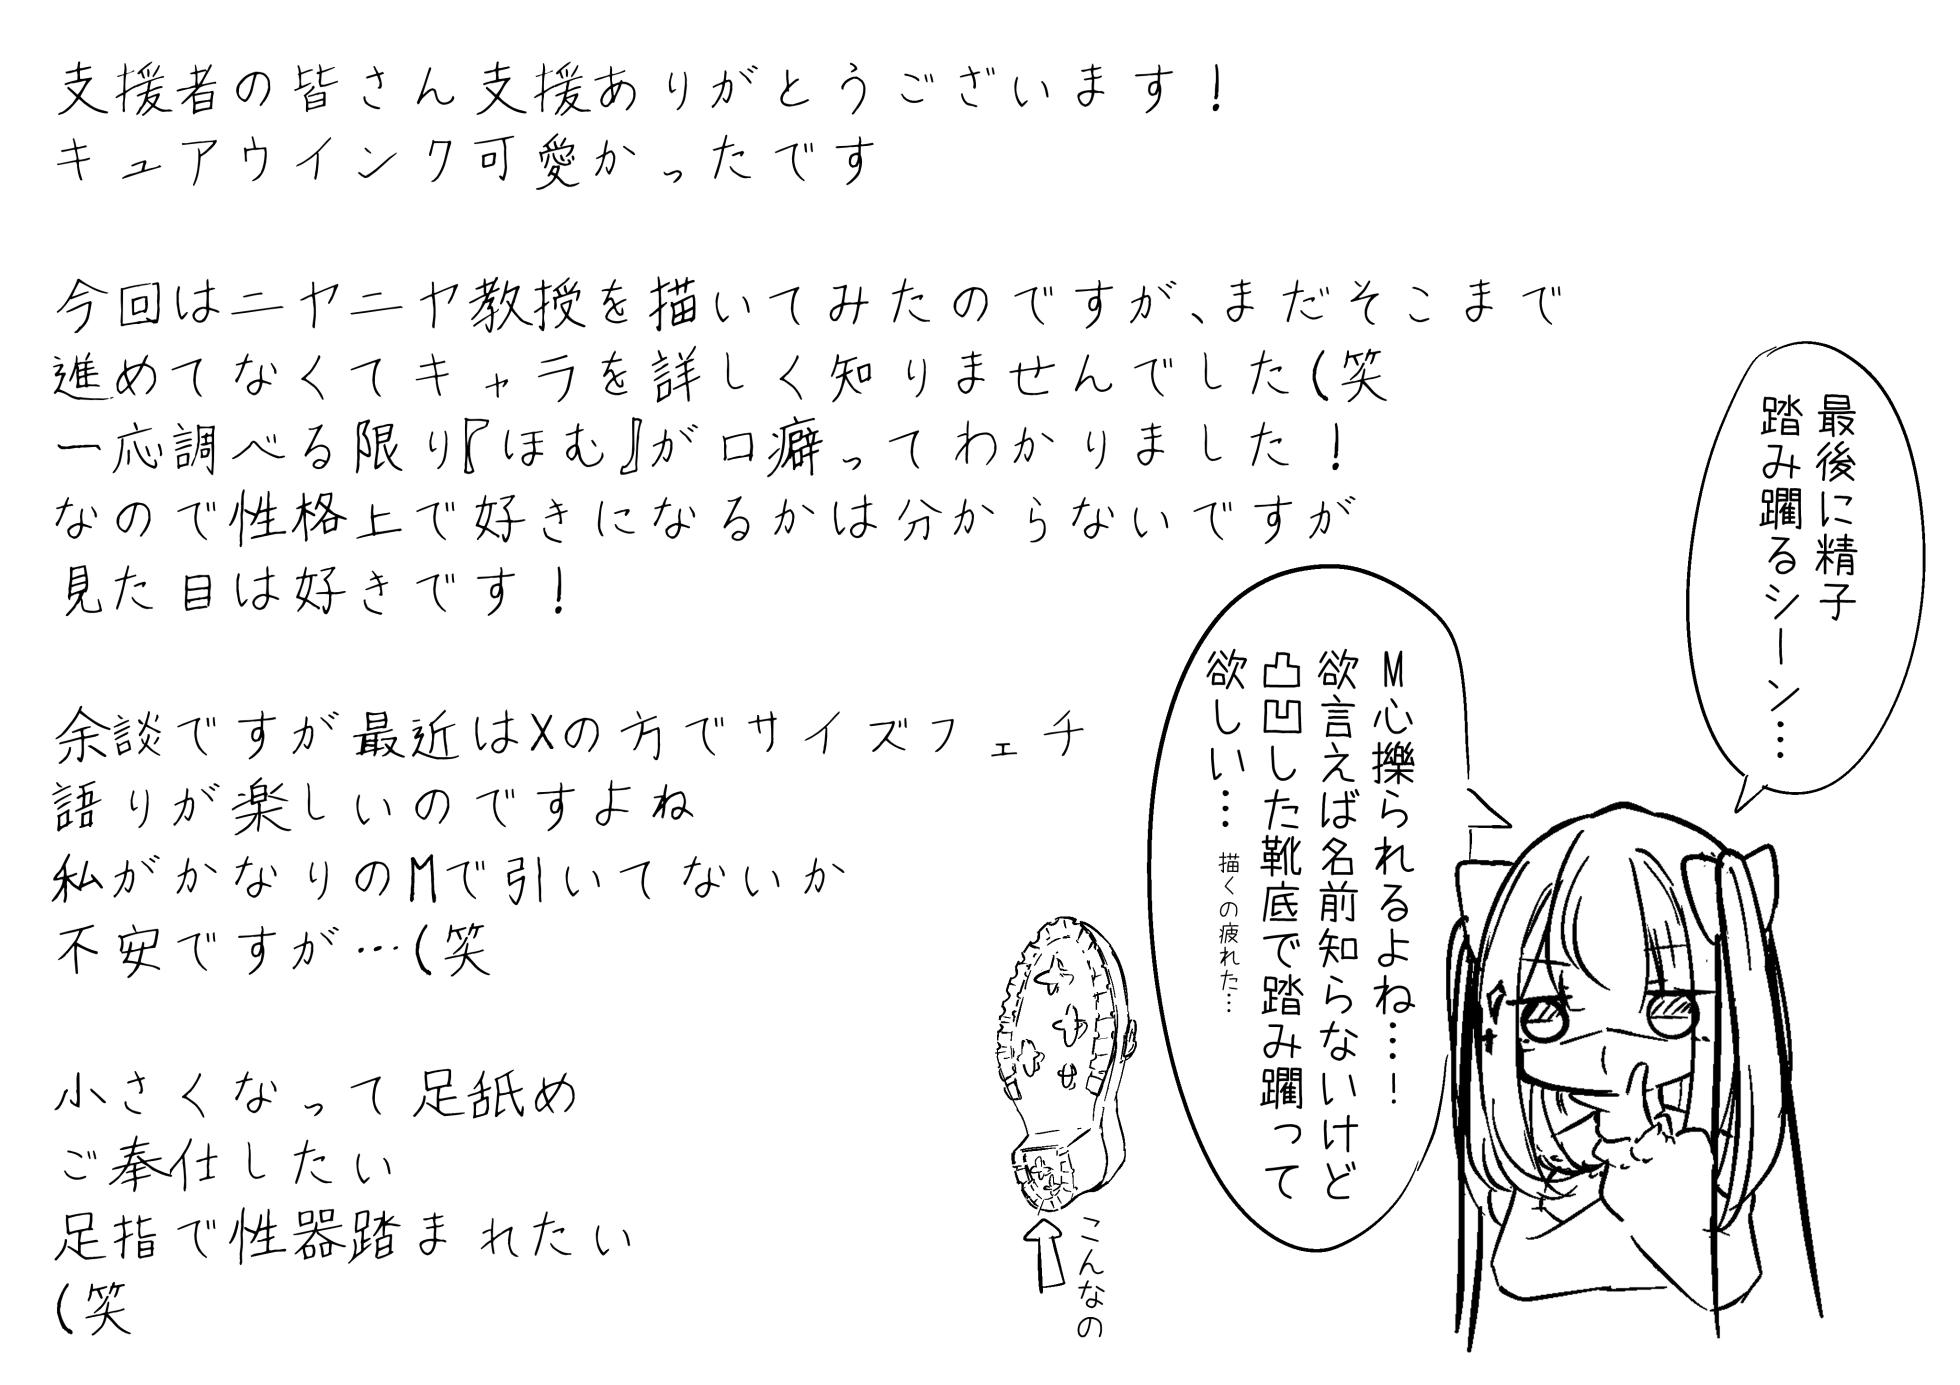 支援者の皆さん支援ありがとうございます！
キュアウインク可愛かったです
今回はニヤニヤ教授を描いてみたのですが、まだそこまで
進めてなくてキャラを詳しく知りませんでした(笑
一応調べる限り『ほむ』が口癖ってわかりました！
なので性格上で好きになるかは分からないですが
見た目は好きです！
余談ですが最近はXの方でサイズフェチ
語りが楽しいのですよね
私がかなりのMで引いてないか
不安ですが…(笑
小さくなって足舐め
ご奉仕したい
足指で性器踏まれたい
(笑
最後に精子
踏み躙るシーン…
M心擽られるよね…！
欲言えば名前知らないけど
凸凹した靴底で踏み躙って
欲しい…
描くの疲れた…
こんなの